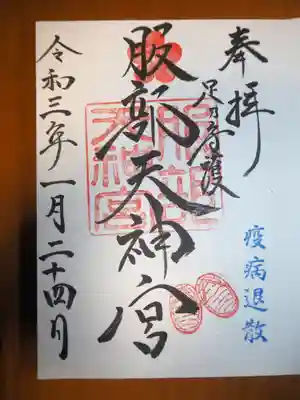 奉拝
足乃守護
疫病退散
服部天神宮
令和三年一月二十四日